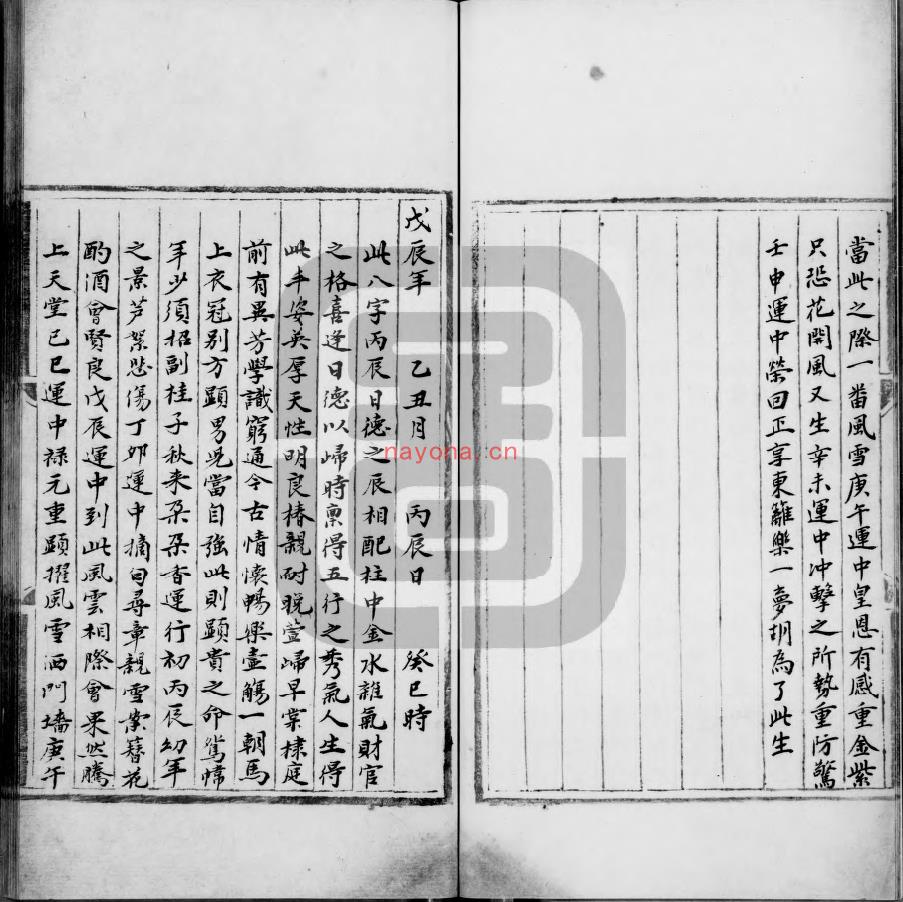 當此之際一畨風雪庚午運中皇恩有感重金紫
只恐花開風又生辛未運中冲擊之所勢重防驚
壬申運中榮回正享東籬樂一夢胡為了此生
戊辰年 乙丑月 丙辰日 癸巳時
此八字丙辰日德之辰相配柱中金水雜氣財官
之格喜逢日德以歸時稟得五行之秀氣人生得
此丰姿美厚天性明良椿親耐晚萱歸早棠棣庭
前有異芳學識窮通今古情懷暢樂壺觴一朝馬
上衣冠别方顕男児當自強此則顕貴之命鴛幃
年少須招副桂子秋来朶朶香運行初丙辰幼年
之景芦絮悲傷丁卯運中摘句尋章親雪案簪花
酌酒會賢良戊辰運中到此風雲相際會果然騰
上天堂己巳運中禄元重顕擢風雪洒門墻庚午
nayona.cn